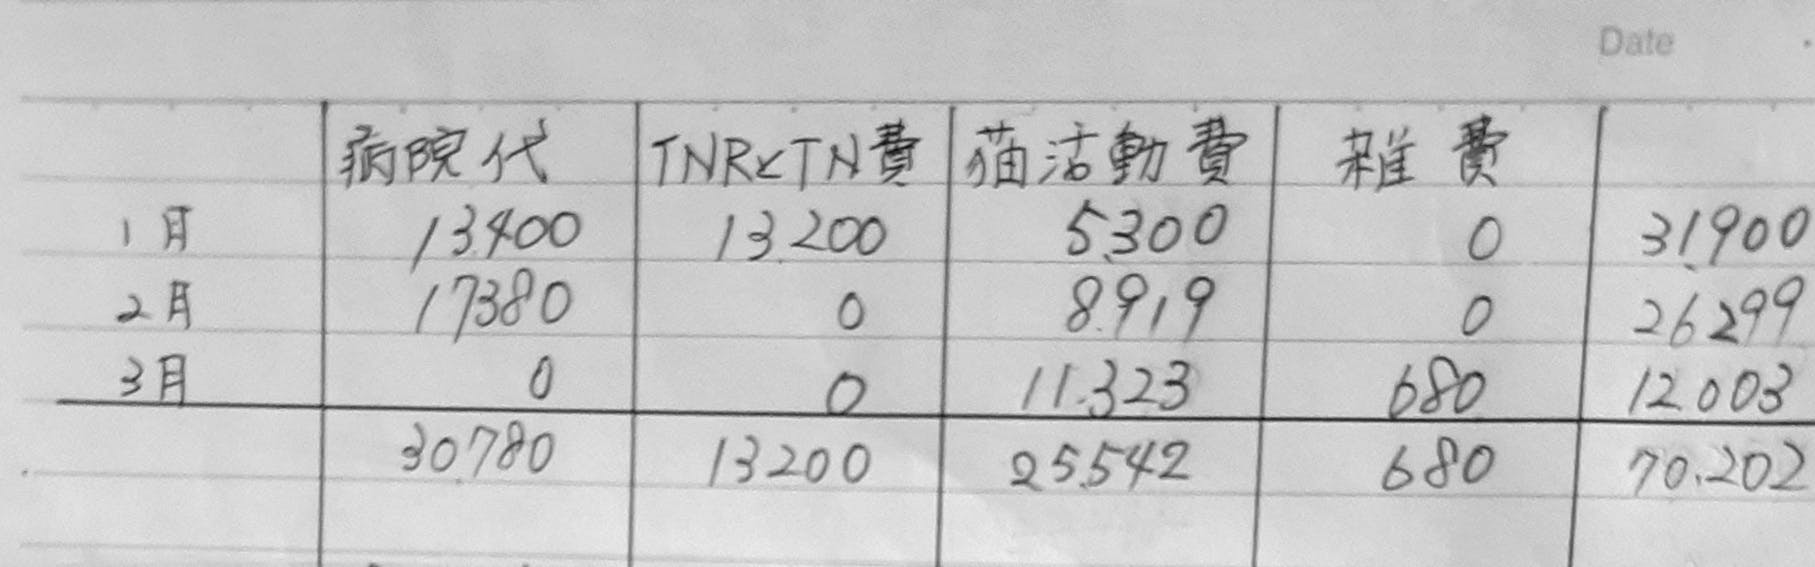 Date
病院代 TNRとTN費 猫活動費 雑費
1月 13.400 13.200 5.300 0 31.900
2月 17380 0 8.919 0 26299
3月 0 0 11.323 680 12.003
30.780 13200 25.542 680 70.202